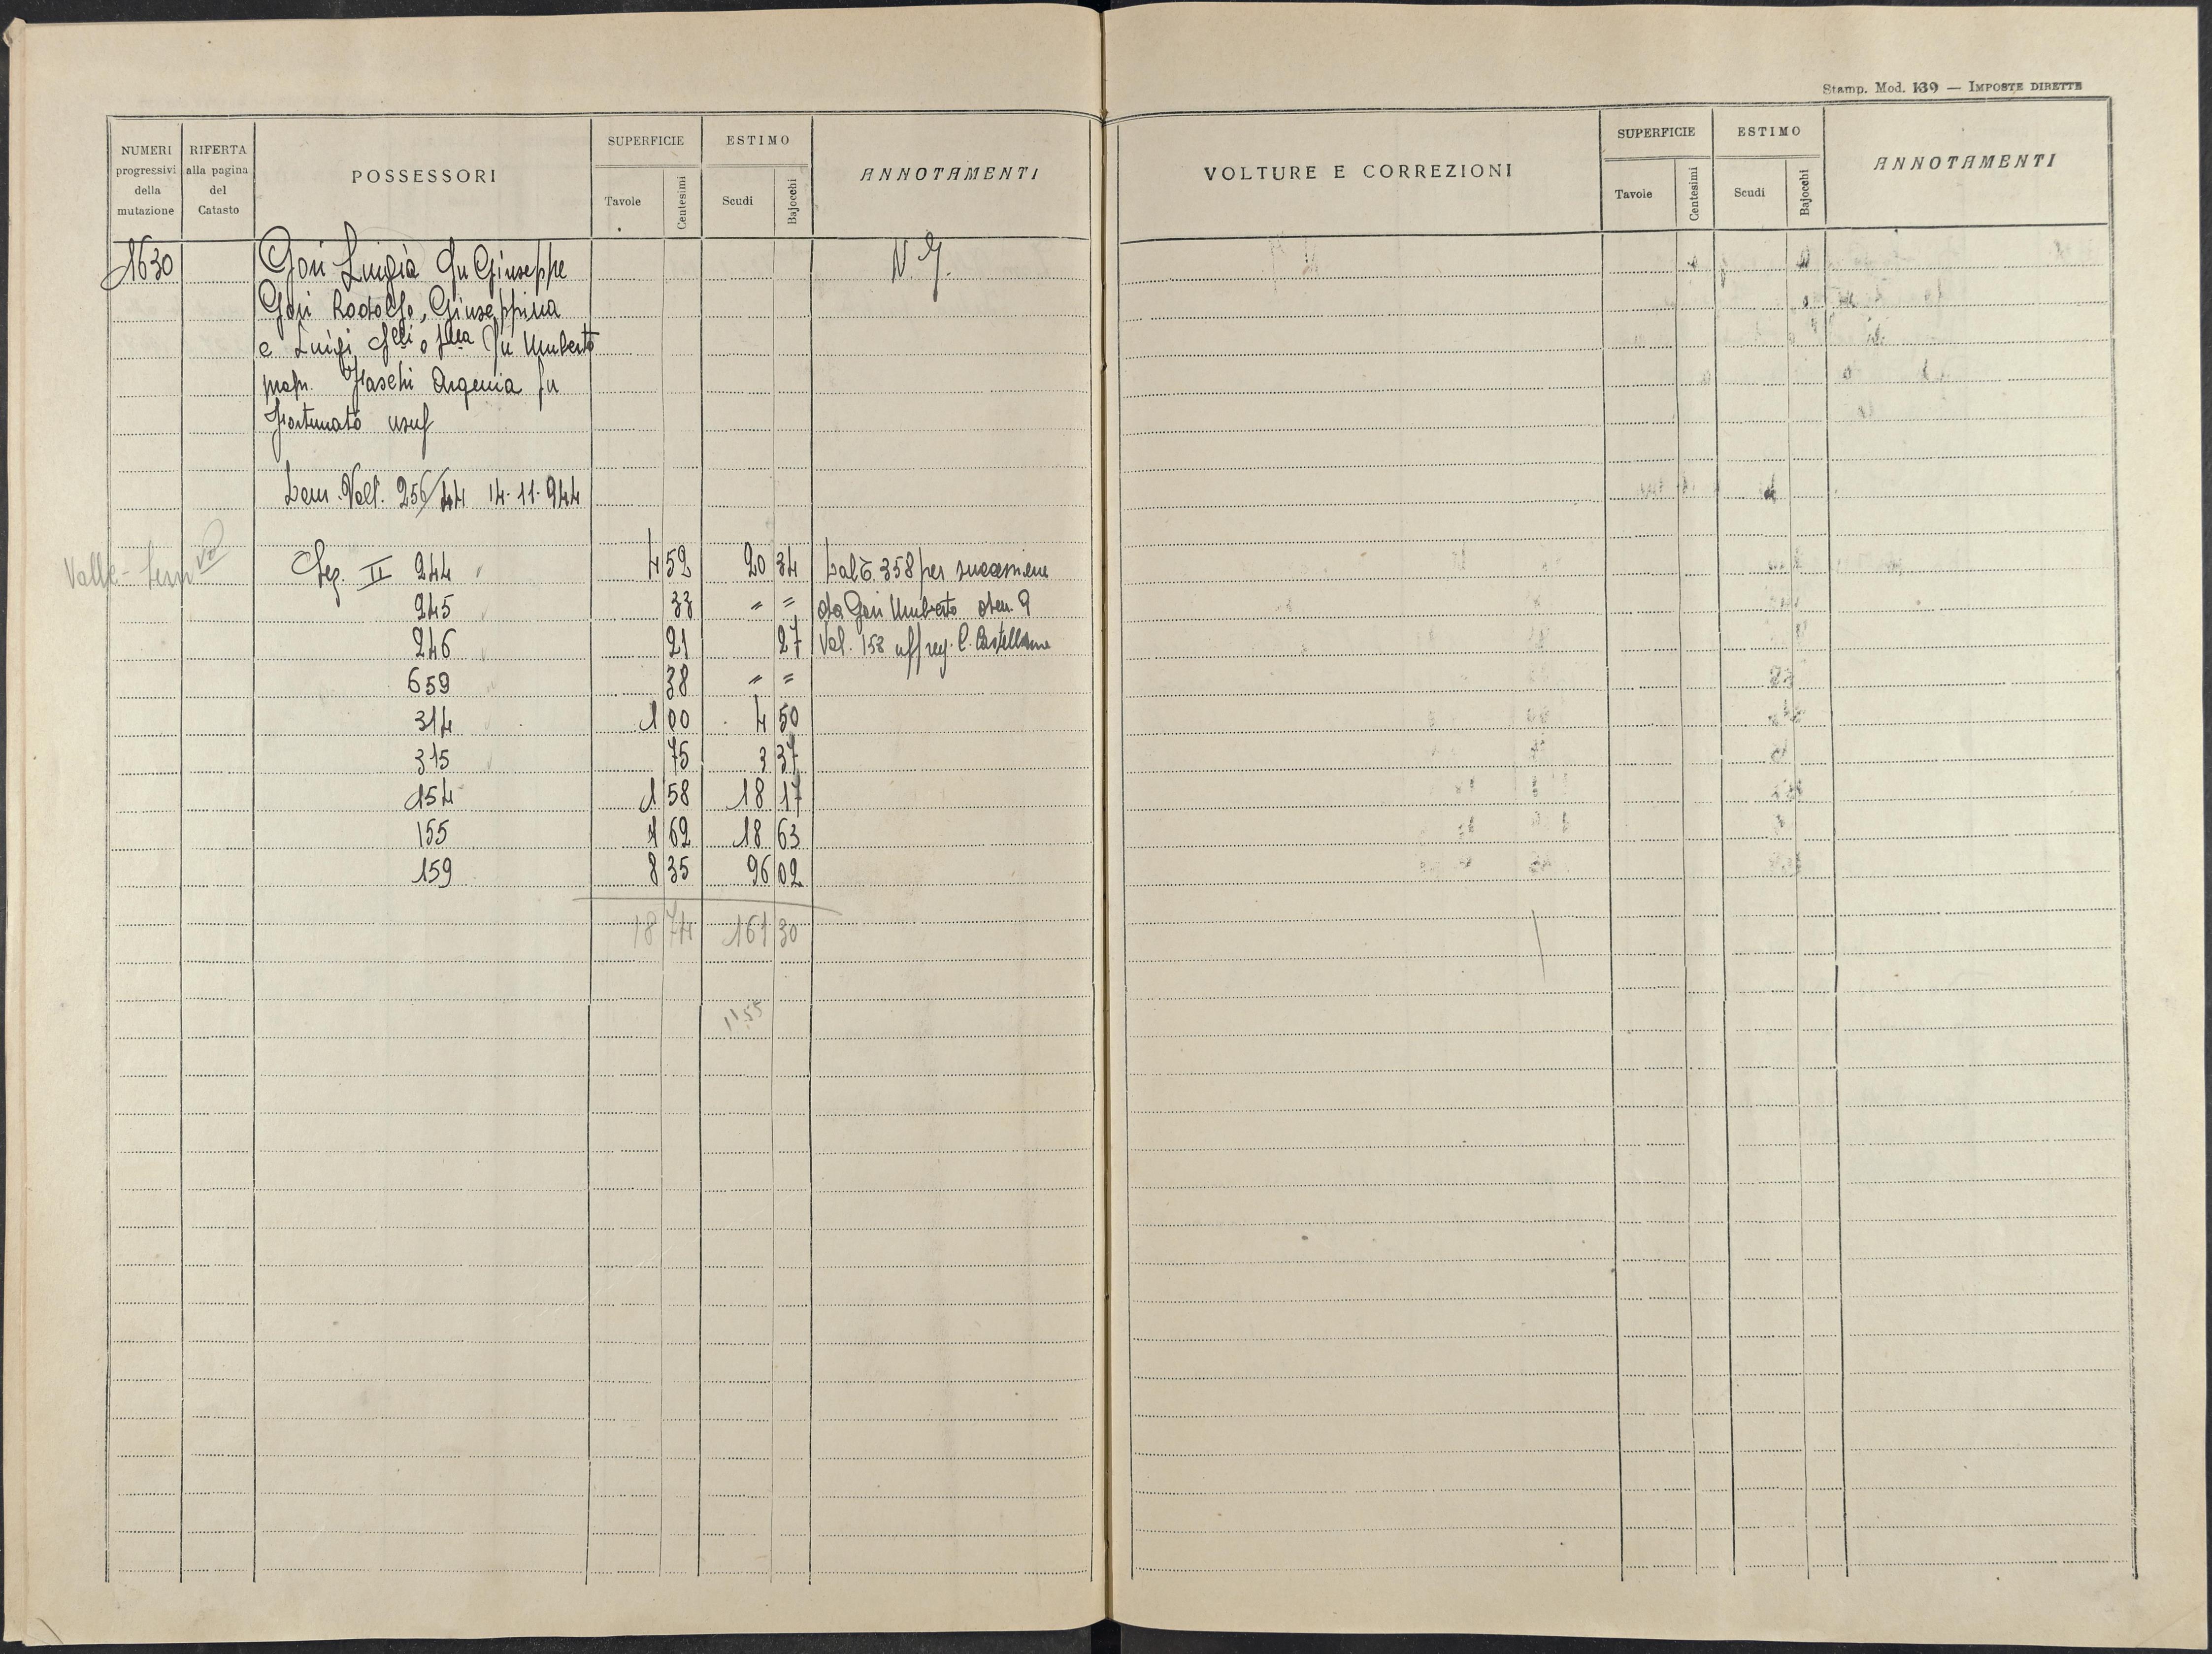 Stamp. Mod. 139 — IMPOSTE DIRETTE
NUMERI progressivi della mutazione
RIFERTA alla pagina del Catasto
POSSESSORI
SUPERFICIE
Tavole Centesimi
ESTIMO
Scudi Bajocchi
ANNOTAMENTI
VOLTURE E CORREZIONI
SUPERFICIE
Tavole Centesimi
ESTIMO
Scudi Bajocchi
ANNOTAMENTI
1630 Gori Luigia fu Giuseppe N. G.
Gori Rodolfo, Giuseppina
e Luigi flli e slla fu Umberto
propr. Fraschi Argenia fu
Fortunato usuf
Dem. Volt. 256/44 14.11.944
Valle-
Sez. II 244 4 52 20 34 Dal c. 358 per successione
245 33 " = da Gori Umberto den. 9
246 21 27 Vol. 153 uff reg. C. Castellana
659 38 " =
314 1 00 4 50
315 75 3 37
154 1 58 18 17
155 1 62 18 63
159 8 35 96 02
18 74 161 30
1155